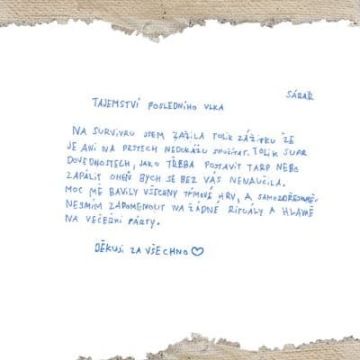 SÁRAŘ
TAJEMSTVÍ POSLEDNÍHO VLKA
NA SURVIVRU JSEM ZAŽILA TOLIK ZÁŽITKU ŽE
JE ANI NA PRSTECH NEDOKÁŽU SPOČÍTAT. TOLIK SUPR
DOVEDNOSTECH, JAKO TŘEBA POSTAVIT TARP NEBO
ZAPÁLIT OHEŇ BYCH SE BEZ VÁS NENAUČILA.
MOC MĚ BAVILY VŠECHNY TÝMOVÉ HRY, A SAMOZŘEJMĚ
NESMÍM ZAPOMENOUT NA ŽÁDNÉ RITUÁLY A HLAVNĚ
NA VEČERNÍ PÁRTY.
DĚKUJI ZA VŠECHNO ♡